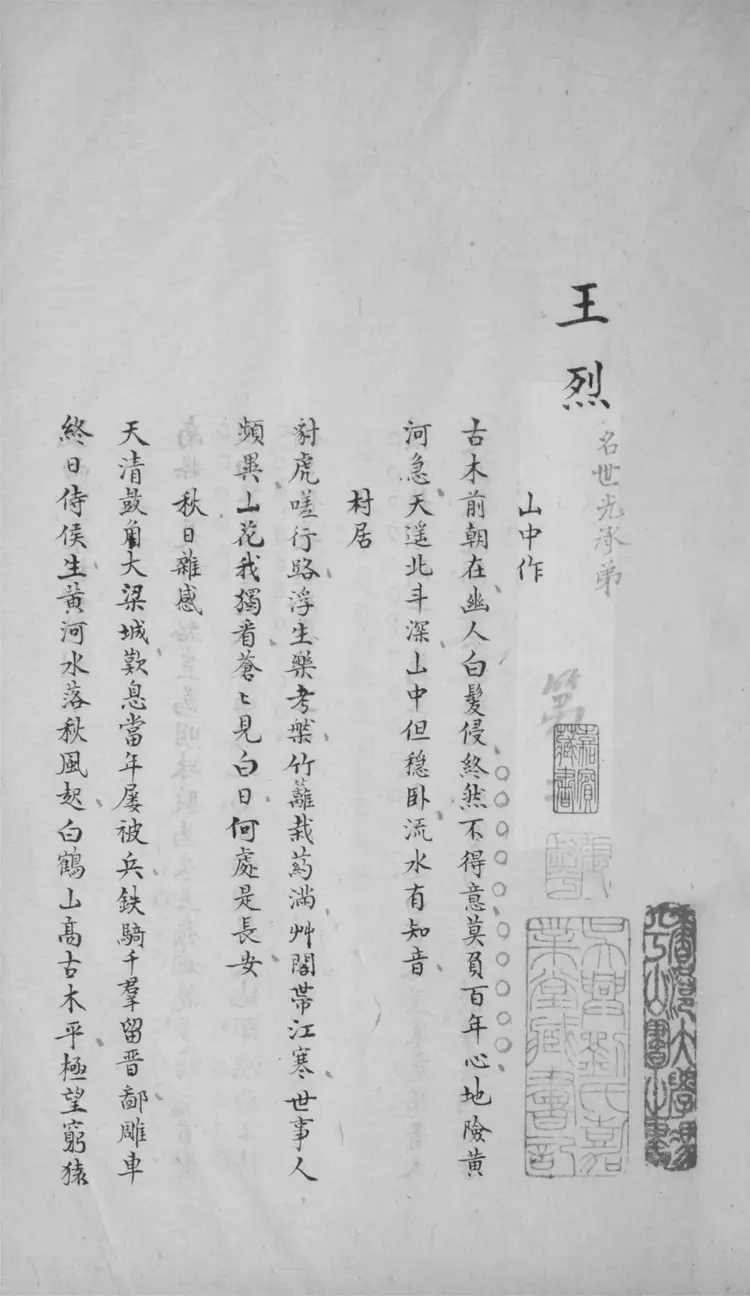 王烈
名世光承弟
山中作
古木前朝在幽人白髮侵終然不得意莫負百年心地險黃
河急天遥北斗深山中但穩卧流水有知音
村居
豺虎嗟行路浮生樂考槃竹籬栽葯滿艸閣帶江寒世事人
頻異山花我獨看蒼〻見白日何處是長安
秋日雜感
天清鼓角大梁城歎息當年屢被兵鉄騎千羣留晋鄙雕車
終日侍侯生黃河水落秋風起白鶴山高古木平極望窮猿
第
嘉賓藏書
吳興劉氏嘉業堂藏書記